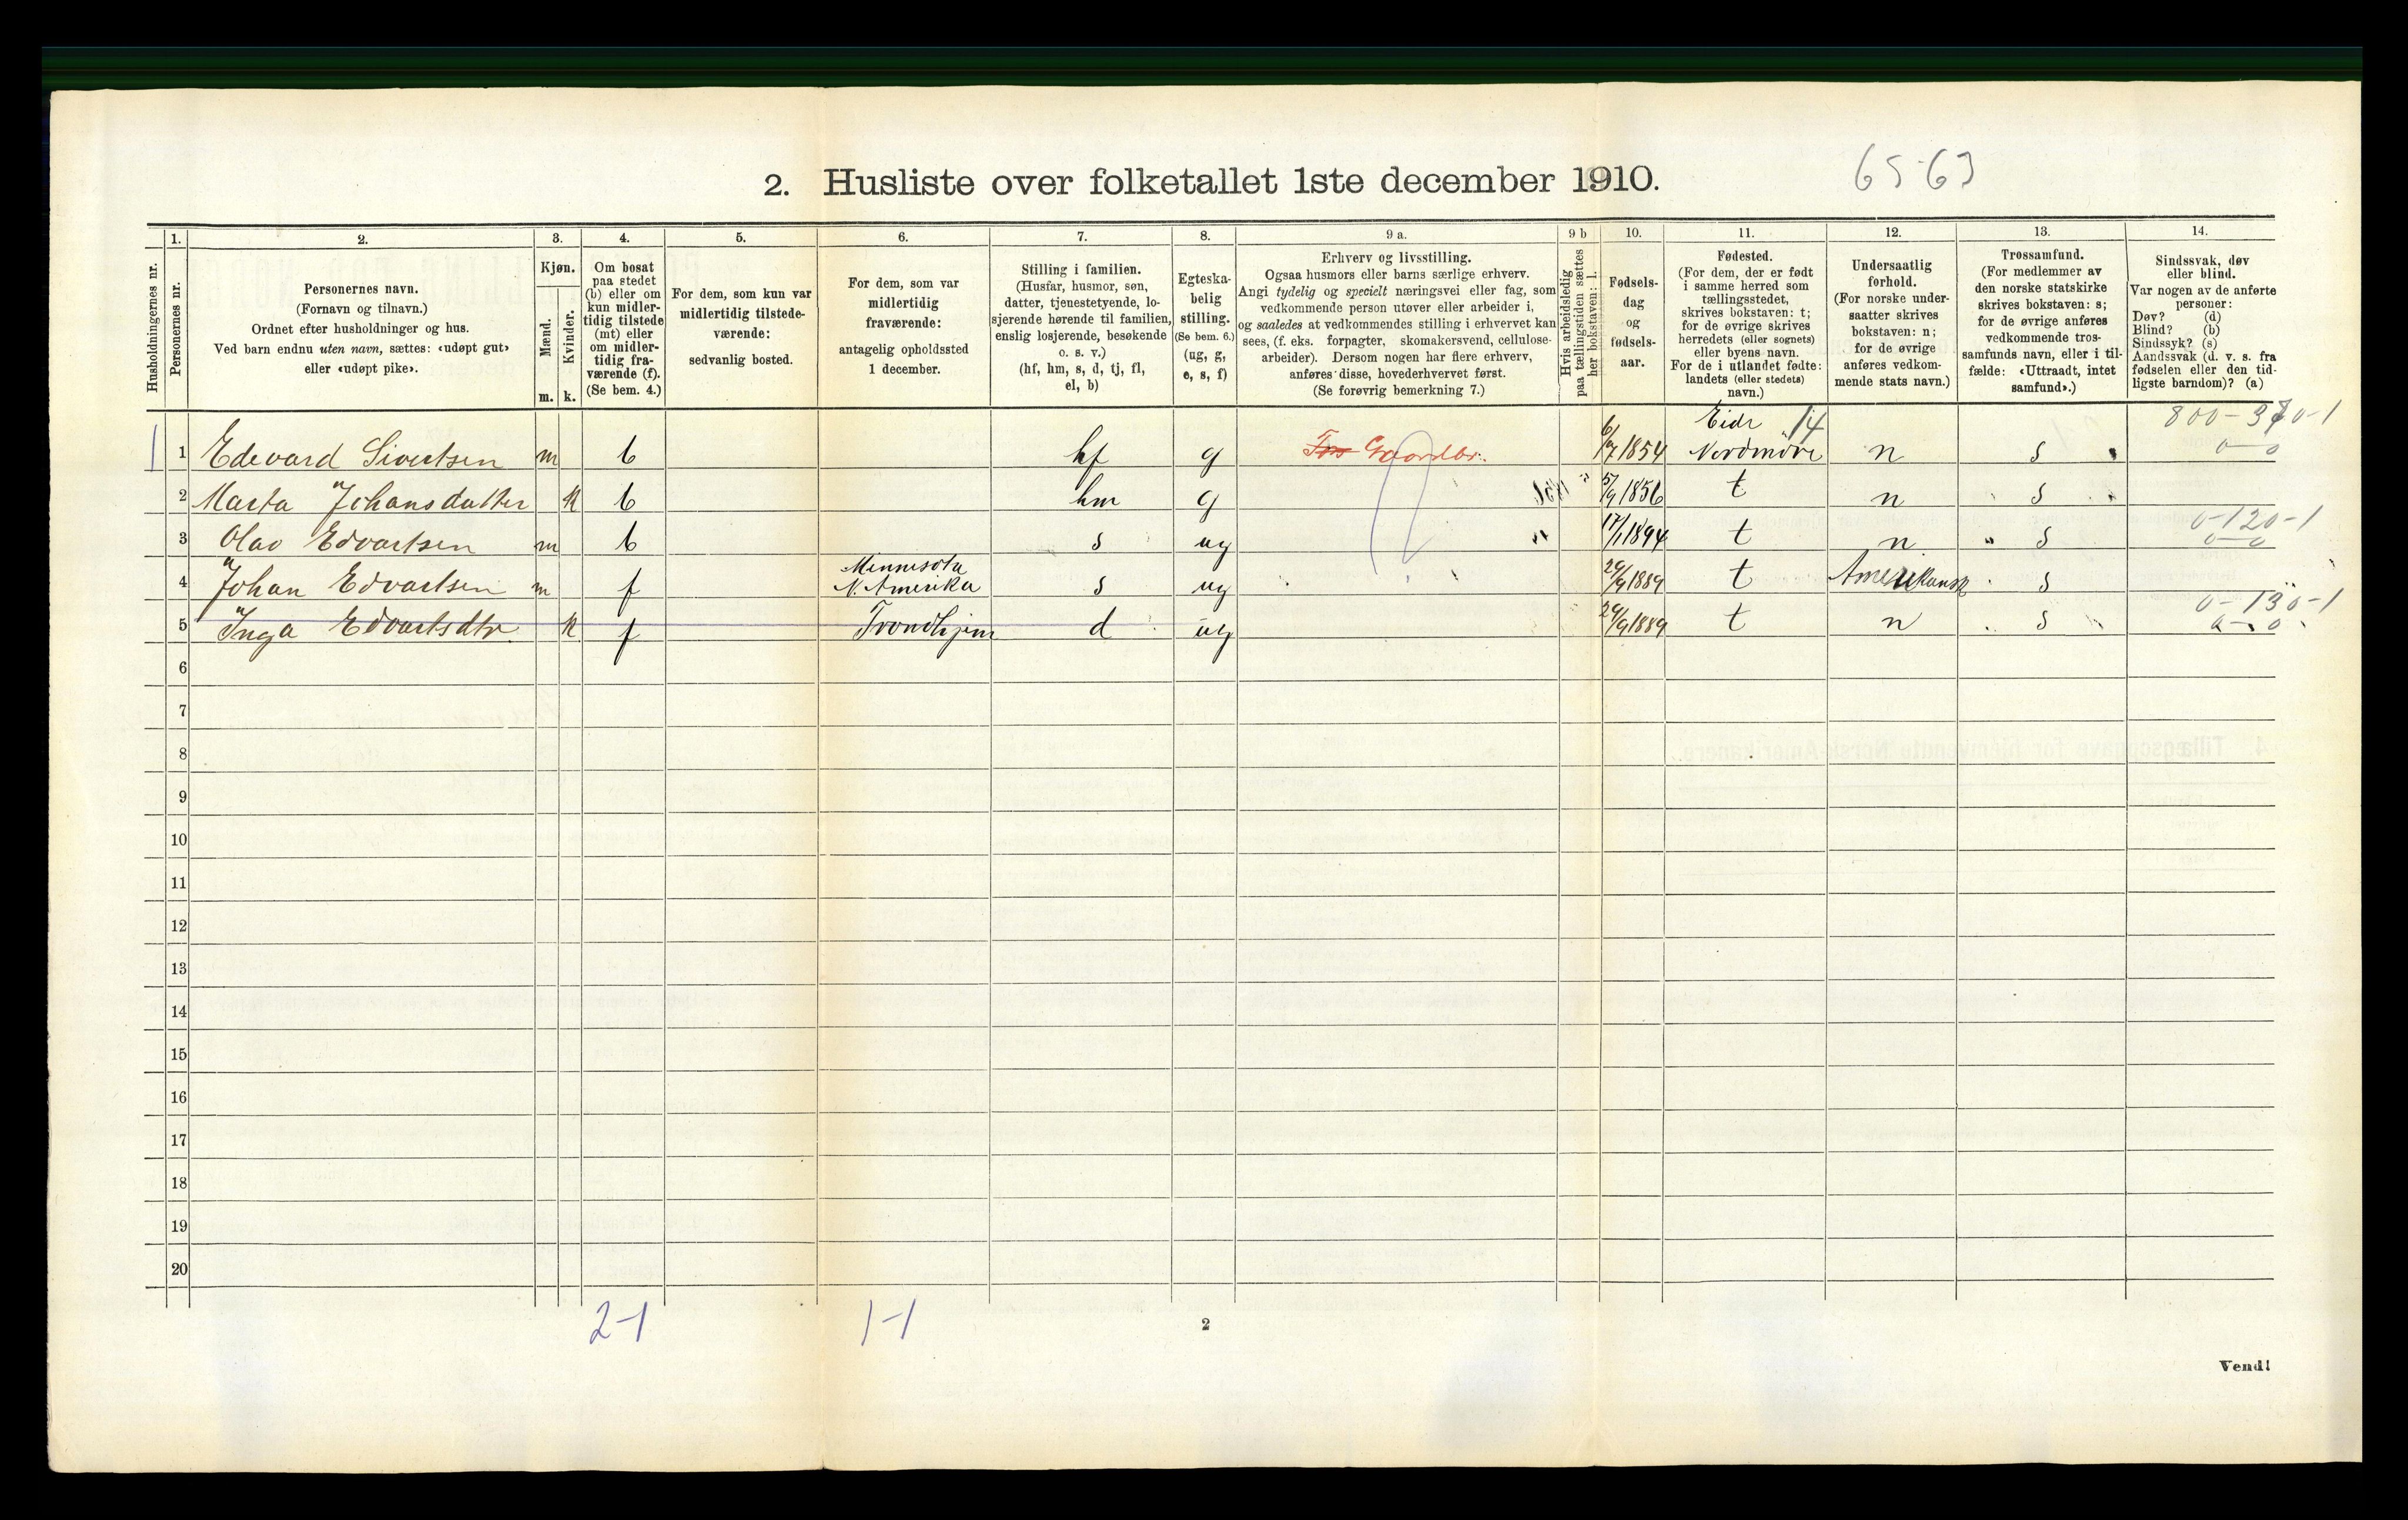 2. Husliste over folketallet 1ste december 1910.
65-63
Husholdningernes nr.
1.
Personernes nr.
2.
Personernes navn.
(Fornavn og tilnavn.)
Ordnet efter husholdninger og hus.
Ved barn endnu uten navn, sættes: «udøpt gut»
eller «udøpt pike».
3.
Kjøn.
Mænd.
Kvinder.
m. k.
4.
Om bosat
paa stedet
(b) eller om
kun midler-
tidig tilstede
(mt) eller
om midler-
tidig fra-
værende (f).
(Se bem. 4.)
5.
For dem, som kun var
midlertidig tilstede-
værende:
sedvanlig bosted.
6.
For dem, som var
midlertidig
fraværende:
antagelig opholdssted
1 december.
7.
Stilling i familien.
(Husfar, husmor, søn,
datter, tjenestetyende, lo-
sjerende hørende til familien,
enslig losjerende, besøkende
o. s. v.)
(hf, hm, s, d, tj, fl,
el, b)
8.
Egteska-
belig
stilling.
(Se bem. 6.)
(ug, g,
e, s, f)
9 a.
Erhverv og livsstilling.
Ogsaa husmors eller barns særlige erhverv.
Angi tydelig og specielt næringsvei eller fag, som
vedkommende person utøver eller arbeider i,
og saaledes at vedkommendes stilling i erhvervet kan
sees, (f. eks. forpagter, skomakersvend, cellulose-
arbeider). Dersom nogen har flere erhverv,
anføres disse, hovederhvervet først.
(Se forøvrig bemerkning 7.)
9 b
Hvis arbeidsledig
paa tællingstiden sættes
her bokstaven: l.
10.
Fødsels-
dag
og
fødsels-
aar.
11.
Fødested.
(For dem, der er født
i samme herred som
tællingsstedet,
skrives bokstaven: t;
for de øvrige skrives
herredets (eller sognets)
eller byens navn.
For de i utlandet fødte:
landets (eller stedets)
navn.)
12.
Undersaatlig
forhold.
(For norske under-
saatter skrives
bokstaven: n;
for de øvrige
anføres vedkom-
mende stats navn.)
13.
Trossamfund.
(For medlemmer av
den norske statskirke
skrives bokstaven: s;
for de øvrige anføres
vedkommende tros-
samfunds navn, eller i til-
fælde: «Uttraadt, intet
samfund».)
14.
Sindssvak, døv
eller blind.
Var nogen av de anførte
personer:
Døv? (d)
Blind? (b)
Sindssyk? (s)
Aandssvak (d. v. s. fra
fødselen eller den tid-
ligste barndom)? (a)
1 1 Edevard Sivertsen m b hf g Gaardbr. 6/7 1854 Eide 14 Nordmöre n s 0-0
2 Marta Johansdatter k b hm g 5/9 1856 t n s
3 Olav Edvartsen m b s ug 17/1 1894 t n s 0-120-1 0-0
4 Johan Edvartsen m f Minnesota N. Amerika s ug 29/9 1889 t Amerikansk s
5 Inga Edvartsdtr k f Trondhjem d ug 29/9 1889 t n s 0-130-1 0-0
6
7
8
9
10
11
12
13
14
15
16
17
18
19
20
2-1 1-1
2
Vend!